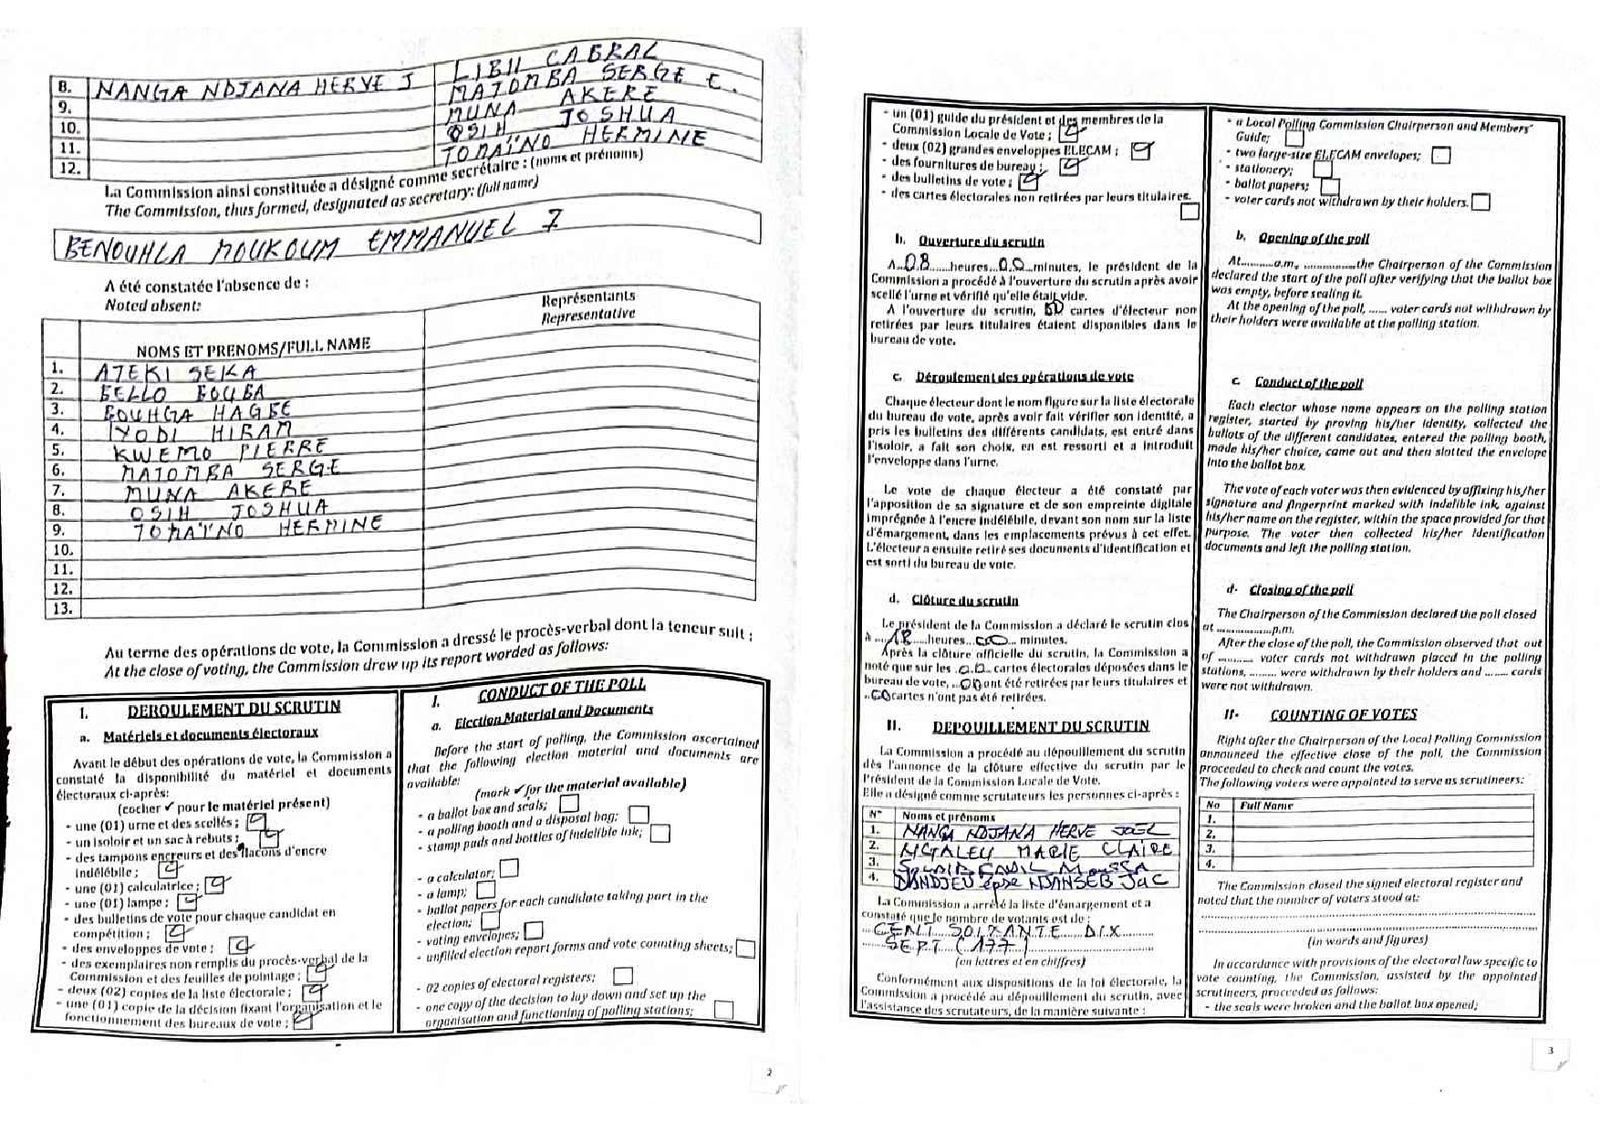 8. NANGA NDJANA HERVE J LIBII CABRAL
9. MATOMBA SERGE C.
10. MUNA AKERE
11. OSIH JOSHUA
12. TOMAÏNO HERMINE
La Commission ainsi constituée a désigné comme secrétaire : (noms et prénoms)
The Commission, thus formed, designated as secretary: (full name)
BENOUHLA MOUKOUM EMMANUEL 7
A été constatée l'absence de :
Noted absent:
Représentants
Representative
NOMS ET PRENOMS/FULL NAME
1. ATEKI SEKA
2. BELLO BOUBA
3. BOUHGA HAGBE
4. IYODI HIRAM
5. KWEMO PIERRE
6. MATOMBA SERGE
7. MUNA AKERE
8. OSIH JOSHUA
9. TOMAÏNO HERMINE
10.
11.
12.
13.
Au terme des opérations de vote, la Commission a dressé le procès-verbal dont la teneur suit ;
At the close of voting, the Commission drew up its report worded as follows:
I. DEROULEMENT DU SCRUTIN
a. Matériels et documents électoraux
Avant le début des opérations de vote, la Commission a
constaté la disponibilité du matériel et documents
électoraux ci-après:
(cocher ✓ pour le matériel présent)
- une (01) urne et des scellés ;
- un isoloir et un sac à rebuts ;
- des tampons encreurs et des flacons d'encre
indélébile ;
- une (01) calculatrice ;
- une (01) lampe ;
- des bulletins de vote pour chaque candidat en
compétition ;
- des enveloppes de vote ;
- des exemplaires non remplis du procès-verbal de la
Commission et des feuilles de pointage ;
- deux (02) copies de la liste électorale ;
- une (01) copie de la décision fixant l'organisation et le
fonctionnement des bureaux de vote ;
I. CONDUCT OF THE POLL
a. Election Material and Documents
Before the start of polling, the Commission ascertained
that the following election material and documents are
available:
(mark ✓ for the material available)
- a ballot box and seals;
- a polling booth and a disposal bag;
- stamp pads and bottles of indelible ink;
- a calculator;
- a lamp;
- ballot papers for each candidate taking part in the
election;
- voting envelopes;
- unfilled election report forms and vote counting sheets;
- 02 copies of electoral registers;
- one copy of the decision to lay down and set up the
organisation and functioning of polling stations;
2
- un (01) guide du président et des membres de la
Commission Locale de Vote ;
- deux (02) grandes enveloppes ELECAM ;
- des fournitures de bureau ;
- des bulletins de vote ;
- des cartes électorales non retirées par leurs titulaires.
b. Ouverture du scrutin
A 08 heures 00 minutes, le président de la
Commission a procédé à l'ouverture du scrutin après avoir
scellé l'urne et vérifié qu'elle était vide.
A l'ouverture du scrutin, cartes d'électeur non
retirées par leurs titulaires étaient disponibles dans le
bureau de vote.
c. Déroulement des opérations de vote
Chaque électeur dont le nom figure sur la liste électorale
du bureau de vote, après avoir fait vérifier son identité, a
pris les bulletins des différents candidats, est entré dans
l'isoloir, a fait son choix, en est ressorti et a introduit
l'enveloppe dans l'urne.
Le vote de chaque électeur a été constaté par
l'apposition de sa signature et de son empreinte digitale
imprégnée à l'encre indélébile, devant son nom sur la liste
d'émargement, dans les emplacements prévus à cet effet.
L'électeur a ensuite retiré ses documents d'identification et
est sorti du bureau de vote.
d. Clôture du scrutin
Le président de la Commission a déclaré le scrutin clos
à 18 heures 00 minutes.
Après la clôture officielle du scrutin, la Commission a
noté que sur les 00 cartes électorales déposées dans le
bureau de vote, 00 ont été retirées par leurs titulaires et
00 cartes n'ont pas été retirées.
II. DEPOUILLEMENT DU SCRUTIN
La Commission a procédé au dépouillement du scrutin
dès l'annonce de la clôture effective du scrutin par le
Président de la Commission Locale de Vote.
Elle a désigné comme scrutateurs les personnes ci-après :
N° Noms et prénoms
1. NANGA NDJANA HERVE JOEL
2. NGALEU MARIE CLAIRE
3. MOUSSA
4. DANDJEU épse NJANSEB JAC
La Commission a arrêté la liste d'émargement et a
constaté que le nombre de votants est de :
CENT SOIXANTE DIX
SEPT (177)
(en lettres et en chiffres)
Conformément aux dispositions de la loi électorale, la
Commission a procédé au dépouillement du scrutin, avec
l'assistance des scrutateurs, de la manière suivante :
- a Local Polling Commission Chairperson and Members'
Guide;
- two large-size ELECAM envelopes;
- stationery;
- ballot papers;
- voter cards not withdrawn by their holders.
b. Opening of the poll
At............a.m, ..................the Chairperson of the Commission
declared the start of the poll after verifying that the ballot box
was empty, before sealing it.
At the opening of the poll, ...... voter cards not withdrawn by
their holders were available at the polling station.
c. Conduct of the poll
Each elector whose name appears on the polling station
register, started by proving his/her identity, collected the
ballots of the different candidates, entered the polling booth,
made his/her choice, came out and then slotted the envelope
into the ballot box.
The vote of each voter was then evidenced by affixing his/her
signature and fingerprint marked with indelible ink, against
his/her name on the register, within the space provided for that
purpose. The voter then collected his/her identification
documents and left the polling station.
d- Closing of the poll
The Chairperson of the Commission declared the poll closed
at ..................p.m.
After the close of the poll, the Commission observed that out
of .......... voter cards not withdrawn placed in the polling
stations, ......... were withdrawn by their holders and ........ cards
were not withdrawn.
II- COUNTING OF VOTES
Right after the Chairperson of the Local Polling Commission
announced the effective close of the poll, the Commission
proceeded to check and count the votes.
The following voters were appointed to serve as scrutineers:
No Full Name
1.
2.
3.
4.
The Commission closed the signed electoral register and
noted that the number of voters stood at:
(in words and figures)
In accordance with provisions of the electoral law specific to
vote counting, the Commission, assisted by the appointed
scrutineers, proceeded as follows:
- the seals were broken and the ballot box opened;
3